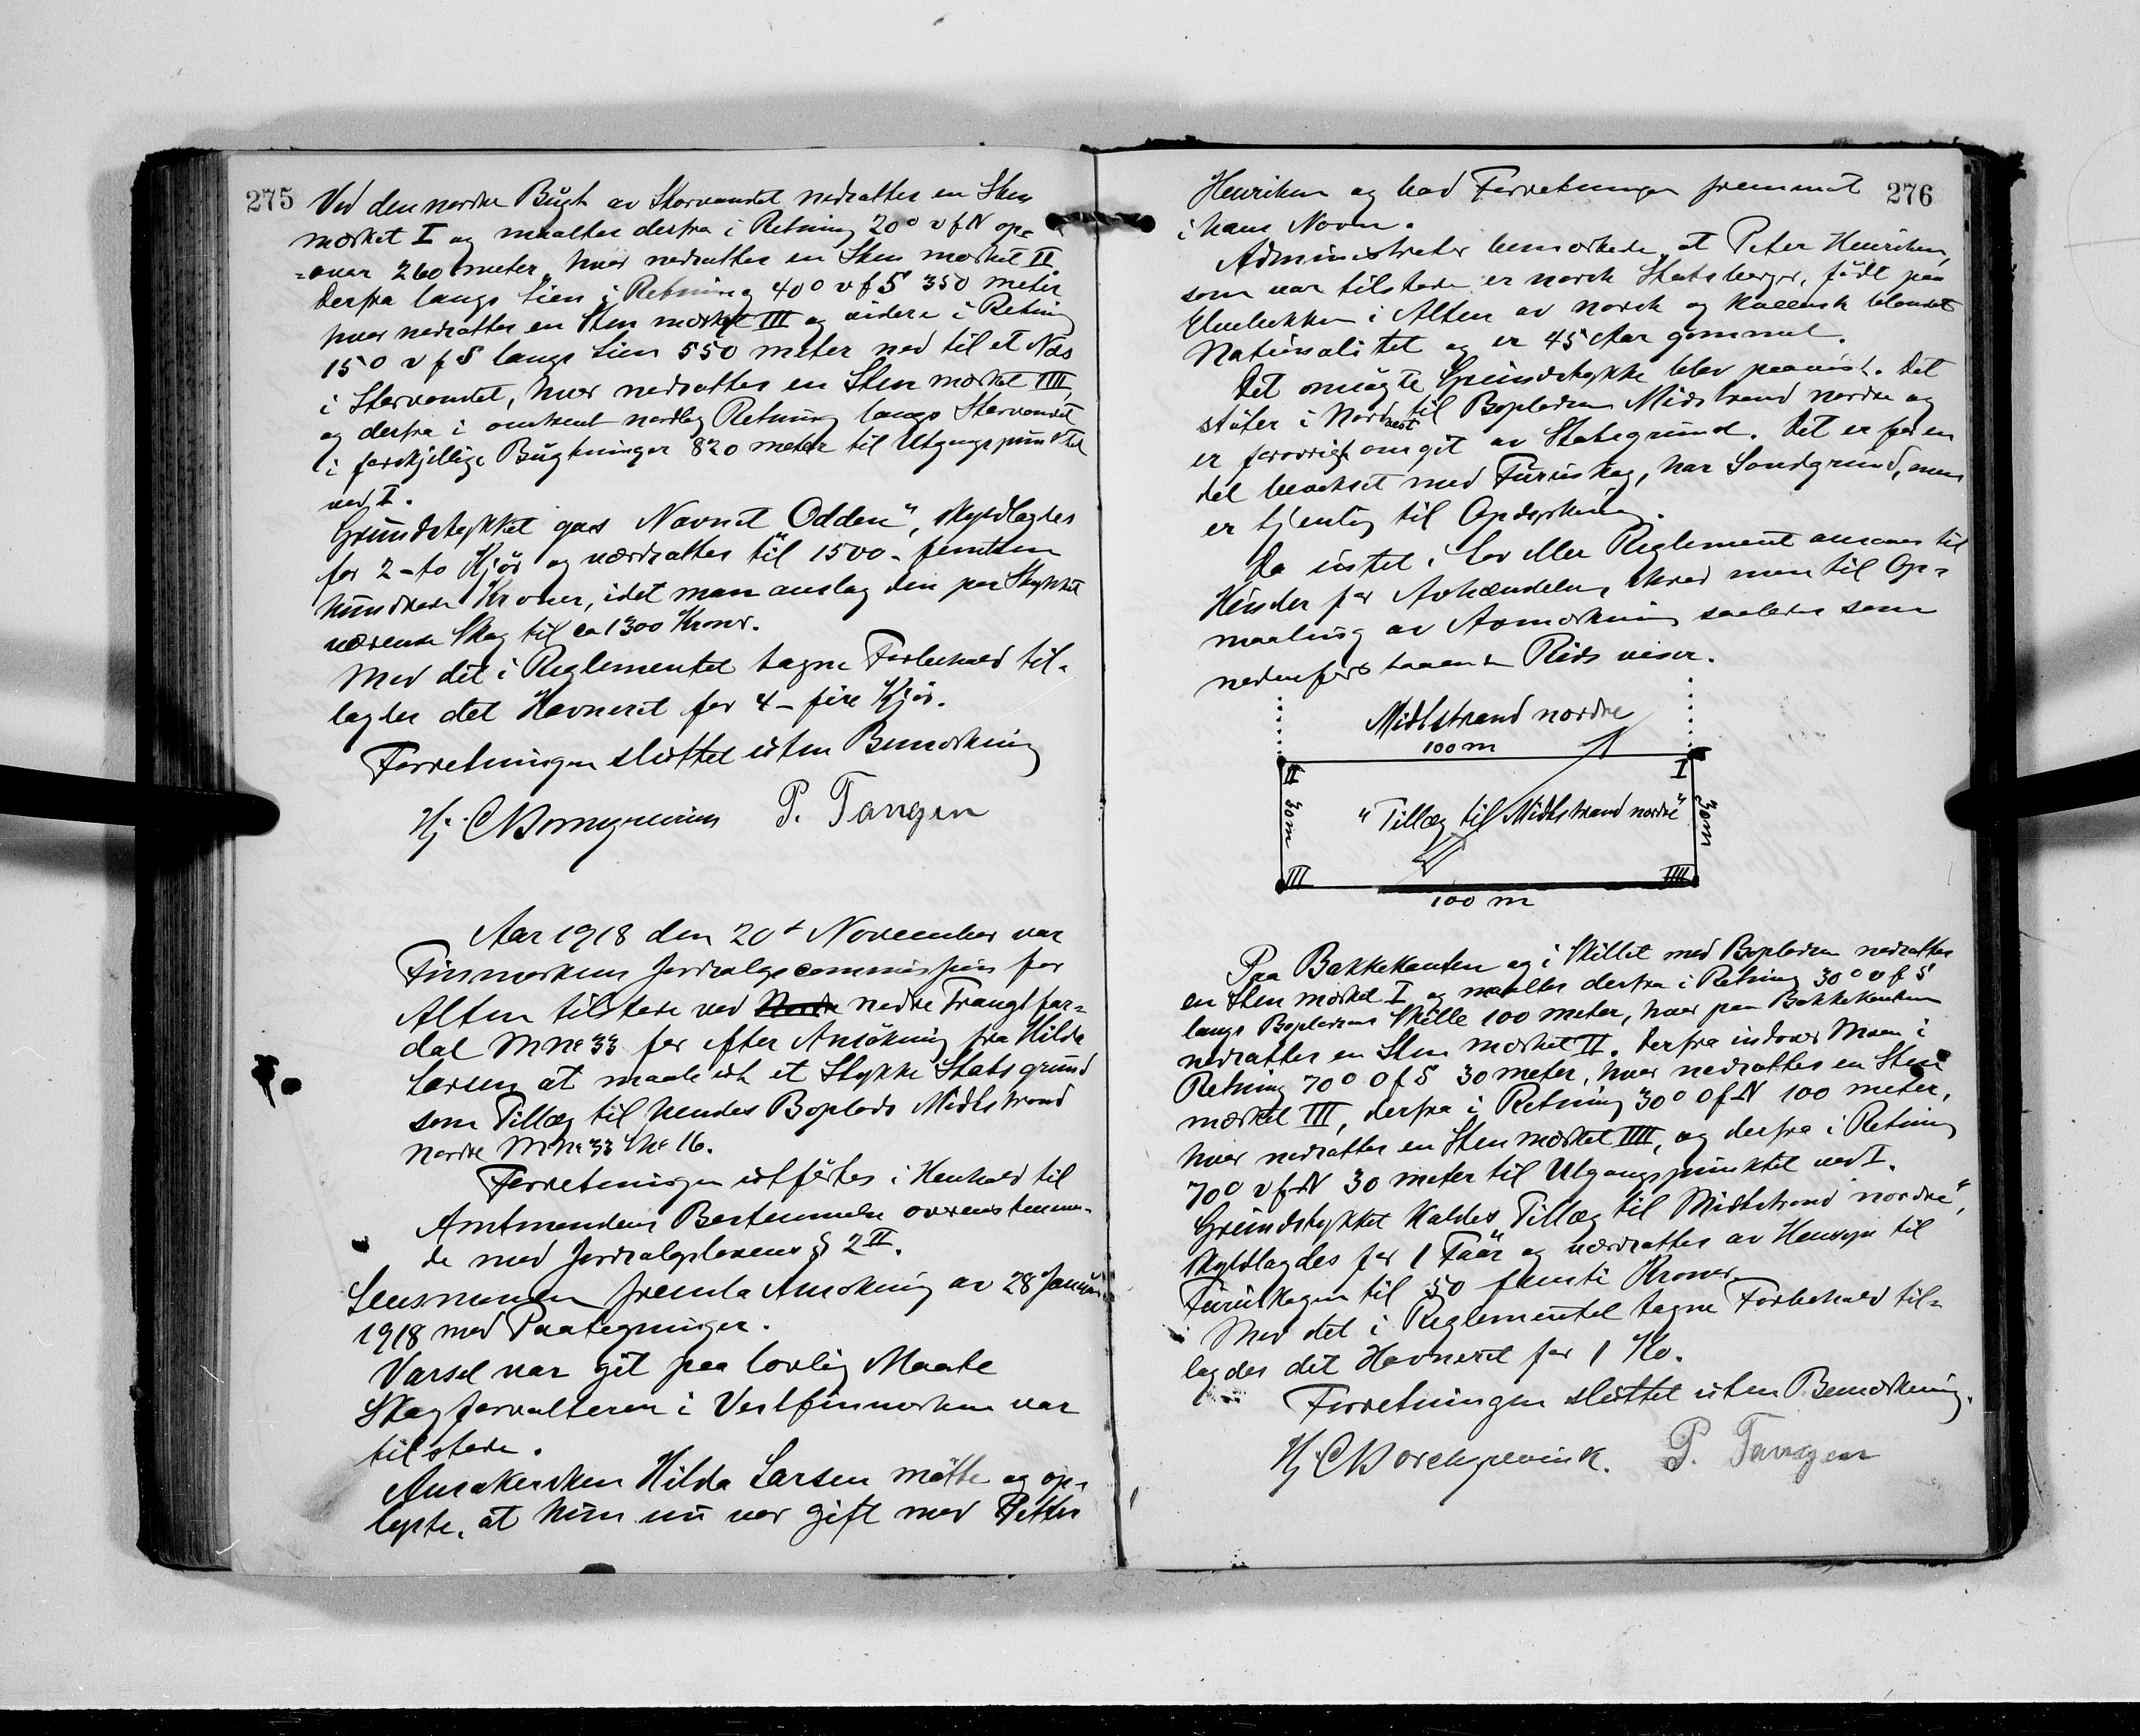 275
Ved den nordre Bugt av Storvandet nedsattes en Sten
mærket I og maaltes derfra i Retning 20° v f N op-
=over 260 meter, hvor nedsattes en Sten mærket II
derfra langs Lien i Retning 40° v f S 350 meter
hvor nedsattes en Sten mærket III og videre i Retning
15° v f S langs Lien 550 meter ned til et Næs
i Storvandet, hvor nedsattes en Sten mærket IIII,
og derfra i omtrent nordlig Retning langs Storvandet
i forskjellige Bugtninger 820 meter til Utgangspunktet
ved I.
Grundstykket gaves Navnet "Odden", skyldlagdes
for 2-to Kjör og værdsattes til 1500- femten
hundrede Kroner, idet man anslog den paa Stykket
værende Skog til ca 1300 Kroner.
Med det i Reglementet tagne Forbehold til-
lagdes det Havneret for 4- fire Kjör.
Forretningen sluttet uten Bemærkning
Hj. C Borchgrevink P. Tangen
Aar 1918 den 20de November var
Finmarkens Jordsalgscommission for
Alten tilstede ved nedre Trangfar-
dal M No 33 for efter Ansökning fra Hilda
Larsen at maale ut et Stykke Statsgrund
som Tillæg til hendes Boplads Midtstrand
nordre M No 33 L No 16.
Forretningen utförtes i Henhold til
Amtmandens Bestemmelse overenstemmen-
de med Jordsalgslovens § 2 II.
Lensmanden fremla Ansökning av 28 Januar
1918 med Paategninger.
Varsel var git paa lovlig Maate
Skogforvalteren i Vestfinmarken var
tilstede.
Ansökersken Hilda Larsen mötte og op-
lyste, at hun nu var gift med Petter
276
Henriksen og bad Forretningen fremmet
i hans Navn.
Administrator bemærkede, at Peter Henriksen,
som var tilstede er norsk Statsborger, födt paa
Elvebakken i Alten av norsk og kvænsk blandet
Nationalitet og er 45 Aar gammel.
Det ansögte Grundstykke blev paavist. Det
stöter i Nordvest til Bopladsen Midtstrand nordre og
er forövrigt omgit av Statsgrund. Det er for en
del bevokset med Furuskog, har Sandgrund, men
er tjenlig til Opdyrkning.
Da intet i Lov eller Reglement ansaaes til
Hinder for Avhændelsen, skred man til Op-
maaling av Avmerkning saaledes som
nedenforstaaende Rids viser.
Midtstrand nordre
100 m
II
I
30 m
"Tillæg til Midtstrand nordre"
30 m
III
IIII
100 m
Paa Bakkekanten og i Skillet med Bopladsen nedsattes
en Sten mærket I og maaltes derfra i Retning 30° v f S
langs Bopladsens Skille 100 meter, hvor paa Bakkekanten
nedsattes en Sten mærket II. Derfra indover Moen i
Retning 70° O f S 30 meter, hvor nedsattes en Sten
mærket III, derfra i Retning 30° O f N 100 meter,
hvor nedsattes en Sten mærket IIII, og derfra i Retning
70° v f N 30 meter til Utgangspunktet ved I.
Grundstykket kaldes "Tillæg til Midtstrand nordre",
skyldlagdes for 1 Faar og værdsattes av Hensyn til
Furuskogen til 50 femti Kroner.
Med det i Reglementet tagne Forbehold til-
lagdes det Havneret for 1 Ko.
Forretningen sluttet uten Bemærkning.
Hj. C Borchgrevink. P. Tangen